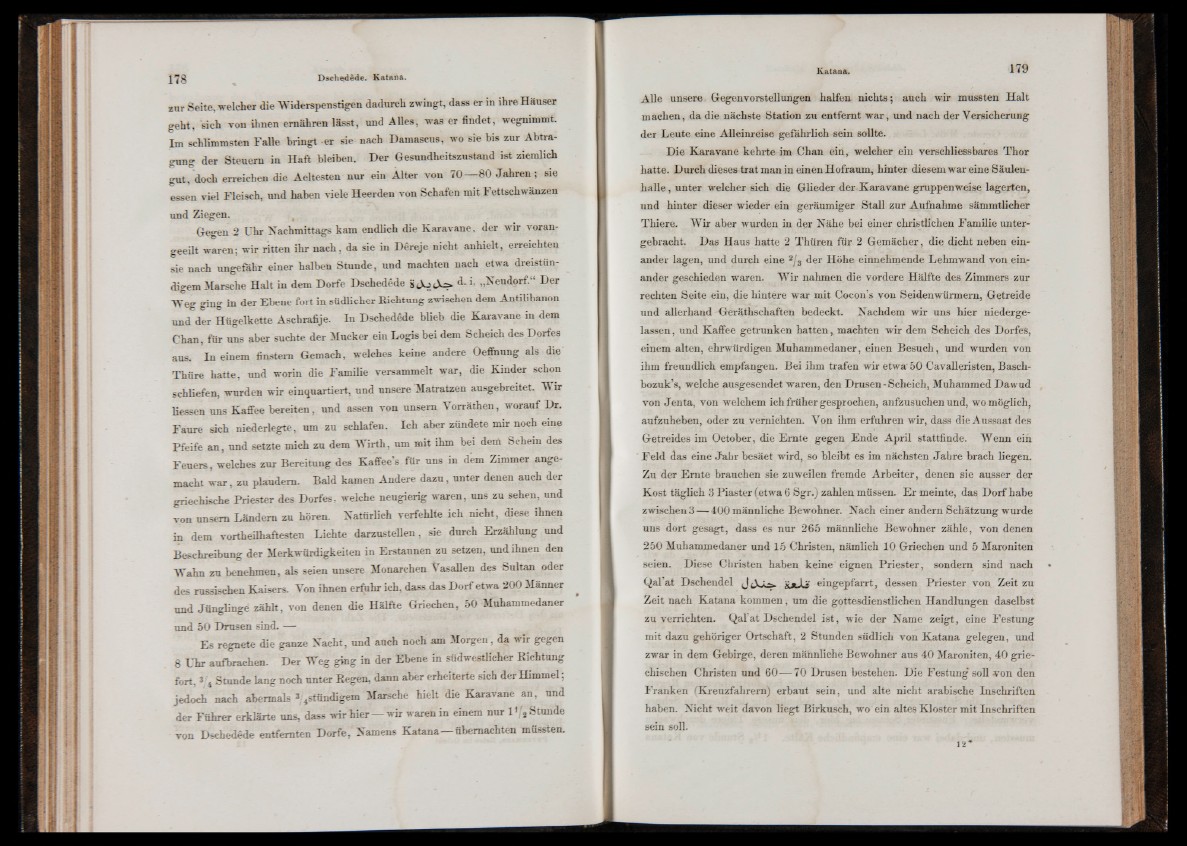 178 Dschedêde. Katana.
zur Seite, welcher die Widerspenstigen dadurch zwingt, dass er in ihre Häuser
geht, sich von ihnen ernähren lässt, und Alles, was er findet, wegnimmt.
Im schlimmsten Falle bringt er sie nach Damascus, wo sie bis zur Abtra-
gung der Steuern in Haft bleiben. Der Gesundheitszustand ist ziemlich
gut, doch erreichen die Aeltesten nur ein Alter von 70—80 Jahren; sie
essen viel Fleisch, und haben viele Heerden von Schafen mit Fettschwänzen
und Ziegen.
Gegen 2 Uhr Nachmittags kam endlich die Karavane, der wir voran-
geeilt waren; wir ritten ihr nach, da sie in Dêreje nicht anhielt, erreichten
sie nach ungefähr einer halben Stunde, und machten nach etwa dreistün-
digem Marsche Halt in dem Dorfe Dschedêde جديدة d. i. „Neudorf.“ Der
Weg ging in der Ebene fort in südlicher Richtung zwischen dem Antilibanon
und der Hügelkette Aschrafije. In Dschedêde blieb die Karavane in dem
Chan, für uns aber suchte der Mucker ein Logis bei dem Scheich des Dorfes
aus. In einem finstern Gemach, welches keine andere Oeffnung als die
Thüre hatte, und worin die Familie versammelt war, die Kinder schon
schliefen, wurden wir einquartiert, und unsere Matratzen ausgebreitet. Wir
liessen uns Kaffee bereiten, und assen von unsern Vorräthen, worauf Dr.
Faure sich niederlegte, um zu schlafen. Ich aber zündete mir noch eine
Pfeife an, und setzte mich zu dem Wirth, um mit ihm bei dem Schein des
Feuers, welches zur Bereitung des Kaffee's für uns in dem Zimmer ange-
macht war, zu plaudern. Bald kamen Andere dazu, unter denen auch der
griechische Priester des Dorfes, welche neugierig waren, uns zu sehen, und
von unsern Ländern zu hören. Natürlich verfehlte ich nicht, diese ihnen
in dem vortheilhaftesten Lichte darzustellen, sie durch Erzählung und
Beschreibung der Merkwürdigkeiten in Erstaunen zu setzen, und ihnen den
Wahn zu benehmen, als seien unsere Monarchen Vasallen des Sultan oder
des russischen Kaisers. Von ihnen erfuhr ich, dass das Dorf etwa 200 Männer
und Jünglinge zählt, von denen die Hälfte Griechen, 50 Muhammedaner
und 50 Drusen sind. —
Es regnete die ganze Nacht, und auch noch am Morgen, da wir gegen
8 Uhr aufbrachen. Der Weg ging in der Ebene in südwestlicher Richtung
fort, 3/4 Stunde lang noch unter Regen, dann aber erheiterte sich der Himmel;
jedoch nach abermals 3/4stündigem Marsche hielt die Karavane an, und
der Führer erklärte uns, dass wir hier — wir waren in einem nur 1 1/2 Stunde
von Dschedêde entfernten Dorfe, Namens Katana — übernachten müssten.
Katana. 179
Alle unsere Gegenvorstellungen halfen nichts; auch wir mussten Halt
machen, da die nächste Station zu entfernt war, und nach der Versicherung
der Leute eine Alleinreise gefährlich sein sollte.
Die Karavane kehrte im Chan ein, welcher ein verschliessbares Thor
hatte. Durch dieses trat man in einen Hofraum, hinter diesem war eine Säulen-
halle, unter welcher sich die Glieder der Karavane gruppenweise lagerten,
und hinter dieser wieder ein geräumiger Stall zur Aufnahme sämmtlicher
Thiere. Wir aber wurden in der Nähe bei einer christlichen Familie unter-
gebracht. Das Haus hatte 2 Thüren für 2 Gemächer, die dicht neben ein-
ander lagen, und durch eine 2/3 der Höhe einnehmende Lehmwand von ein-
ander geschieden waren. Wir nahmen die vordere Hälfte des Zimmers zur
rechten Seite ein, die hintere war mit Cocon's von Seidenwürmern, Getreide
und allerhand Geräthschaften bedeckt. Nachdem wir uns hier niederge-
lassen, und Kaffee getrunken hatten, machten wir dem Scheich des Dorfes,
einem alten, ehrwürdigen Muhammedaner, einen Besuch, und wurden von
ihm freundlich empfangen. Bei ihm trafen wir etwa 50 Cavalleristen, Basch-
bozuk's, welche ausgesendet waren, den Drusen-Scheich, Muhammed Dawud
von Jenta, von welchem ich früher gesprochen, aufzusuchen und, wo möglich,
aufzuheben, oder zu vernichten. Von ihm erfuhren wir, dass die Aussaat des
Getreides im October, die Ernte gegen Ende April stattfinde. Wenn ein
Feld das eine Jahr besäet wird, so bleibt es im nächsten Jahre brach liegen.
Zu der Ernte brauchen sie zuweilen fremde Arbeiter, denen sie ausser der
Kost täglich 3 Piaster (etwa 6 Sgr.) zahlen müssen. Er meinte, das Dorf habe
zwischen 3 — 400 männliche Bewohner. Nach einer andern Schätzung wurde
uns dort gesagt, dass es nur 265 männliche Bewohner zähle, von denen
250 Muhammedaner und 15 Christen, nämlich 10 Griechen und 5 Maroniten
seien. Diese Christen haben keine eignen Priester, sondern sind nach
Qal'at Dschendel قلعة جندل eingepfarrt, dessen Priester von Zeit zu
Zeit nach Katana kommen, um die gottesdienstlichen Handlungen daselbst
zu verrichten. Qal'at Dschendel ist, wie der Name zeigt, eine Festung
mit dazu gehöriger Ortschaft, 2 Stunden südlich von Katana gelegen, und
zwar in dem Gebirge, deren männliche Bewohner aus 40 Maroniten, 40 grie-
chischen Christen und 60—70 Drusen bestehen. Die Festung soll von den
Franken (Kreuzfahrern) erbaut sein, und alte nicht arabische Inschriften
haben. Nicht weit davon liegt Birkusch, wo ein altes Kloster mit Inschriften
sein soll.
12*